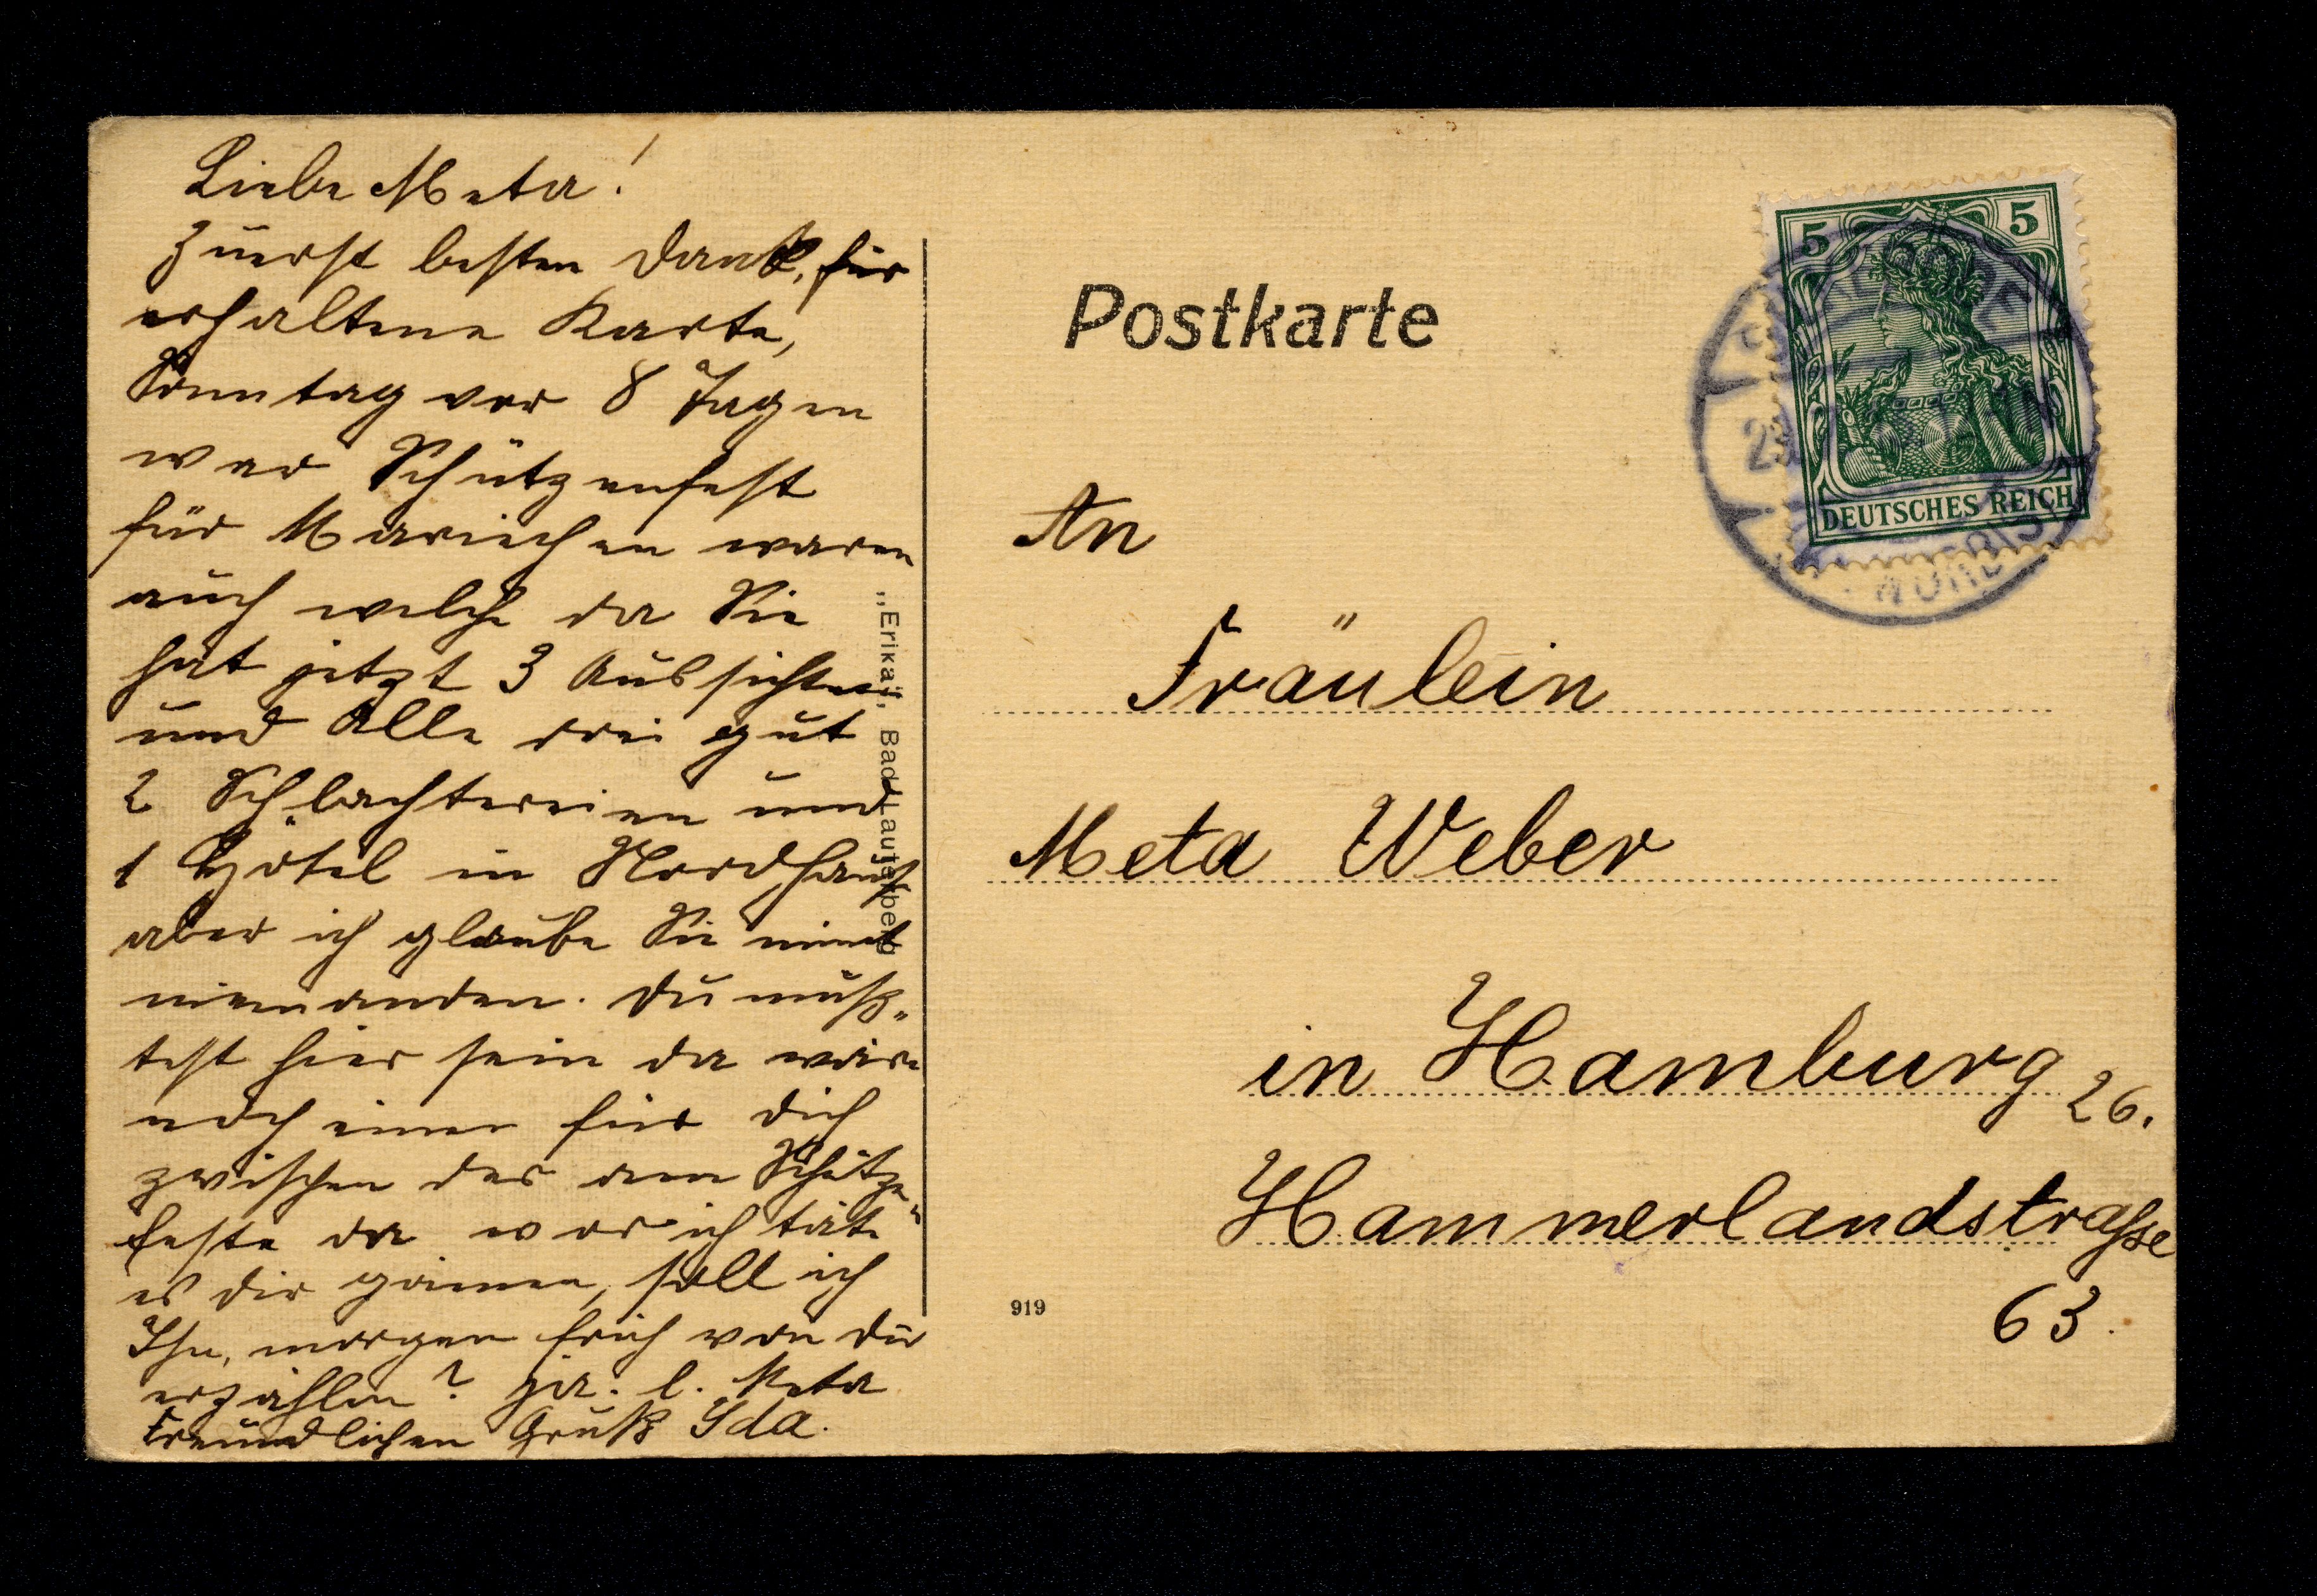 Liebe Meta!
Zuerst besten Dank, für
erhaltene Karte,
Sonntag vor 8 Tagen
war Schützenfest
für Mariechen waren
auch welche da Sie
hat jetzt 3 Aussichten
und Alle drei gut
2 Schlachtereien und
1 Hotel in Nordhaus
aber ich glaube Sie nimt
niemanden. Du müß„
test hier sein da wäre
noch einer für Dich
zwischen der am Schütze„
feste da war ich täte
es dir gönnen, soll ich
Ihn, morgen früh von dir
erzählen? ja. l. Meta
Freundlichen Gruß Ida.
„Erika", Bad Lauterberg
Postkarte
5 5
DEUTSCHES REICH
An
Fräulein
Meta Weber
in Hamburg 26.
Hammerlandstraße
63.
919